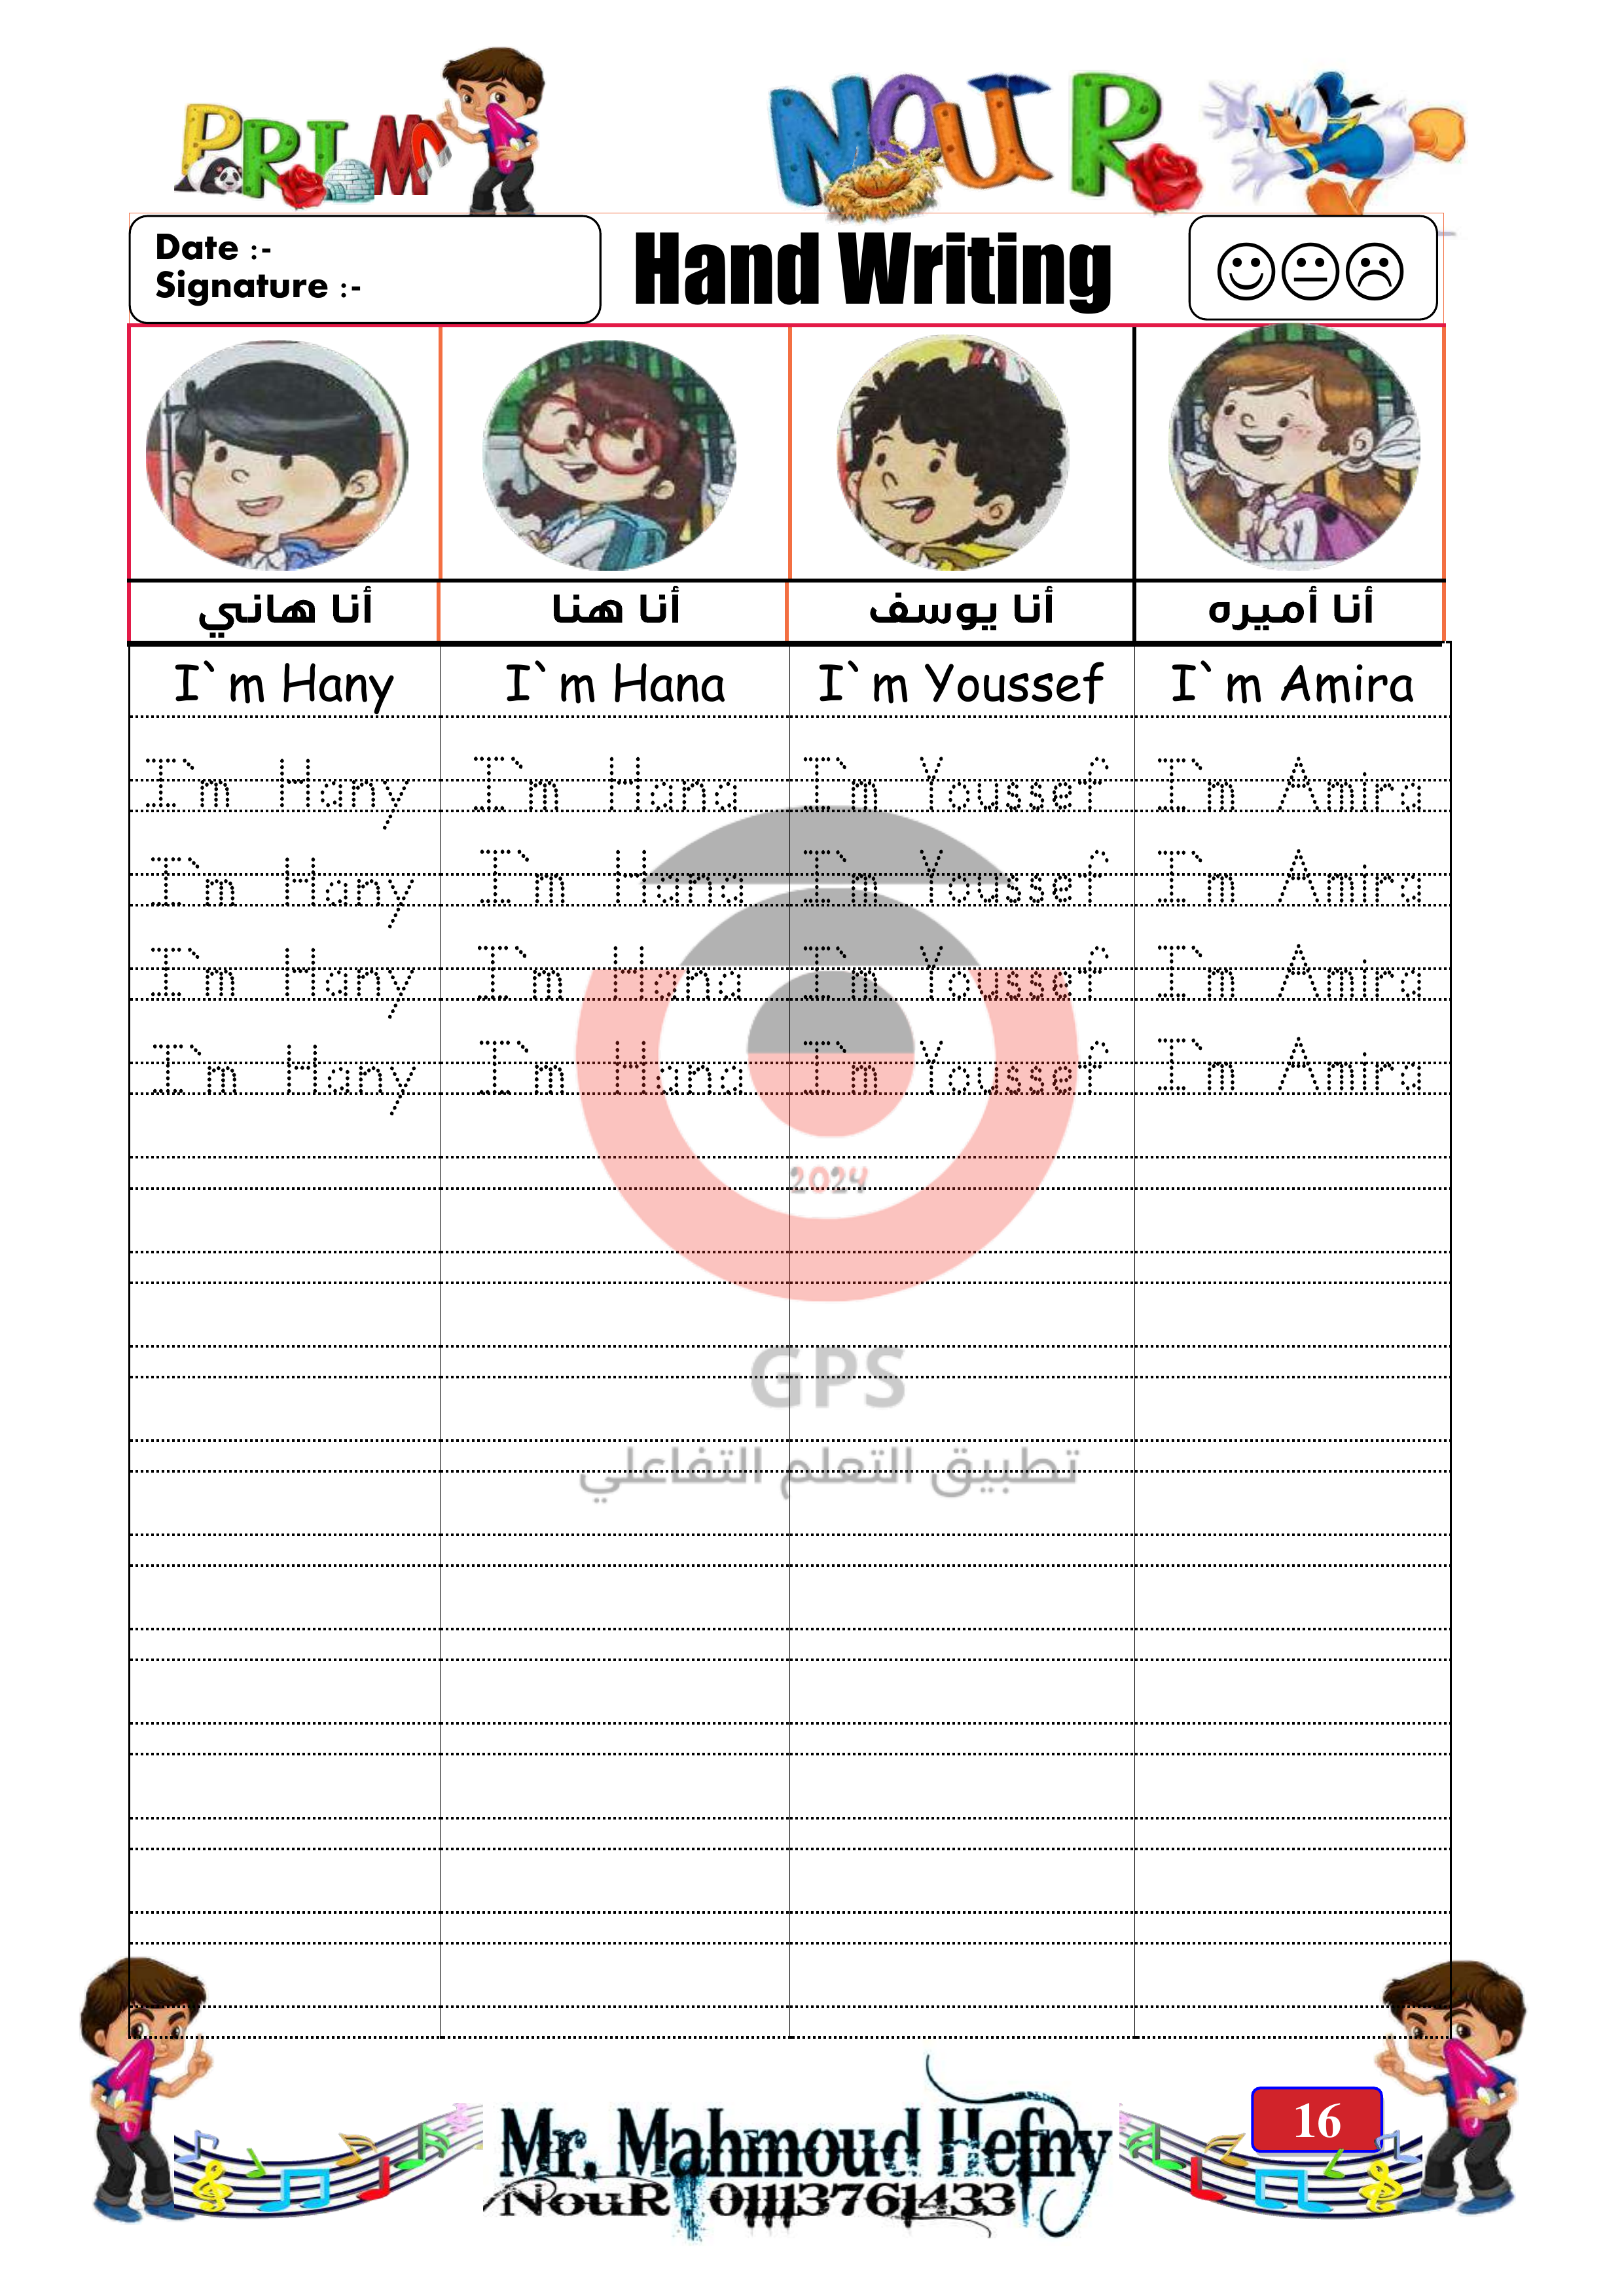 PRIM 1
NOUR
Date :-
Signature :-
Hand Writing
أنا هاني أنا هنا أنا يوسف أنا أميره
I`m Hany I`m Hana I`m Youssef I`m Amira
I`m Hany I`m Hana I`m Youssef I`m Amira
I`m Hany I`m Hana I`m Youssef I`m Amira
I`m Hany I`m Hana I`m Youssef I`m Amira
I`m Hany I`m Hana I`m Youssef I`m Amira
2024
GPS
تطبيق التعلم التفاعلي
1
1
16
Mr. Mahmoud Hefny
NouR. 01113761433